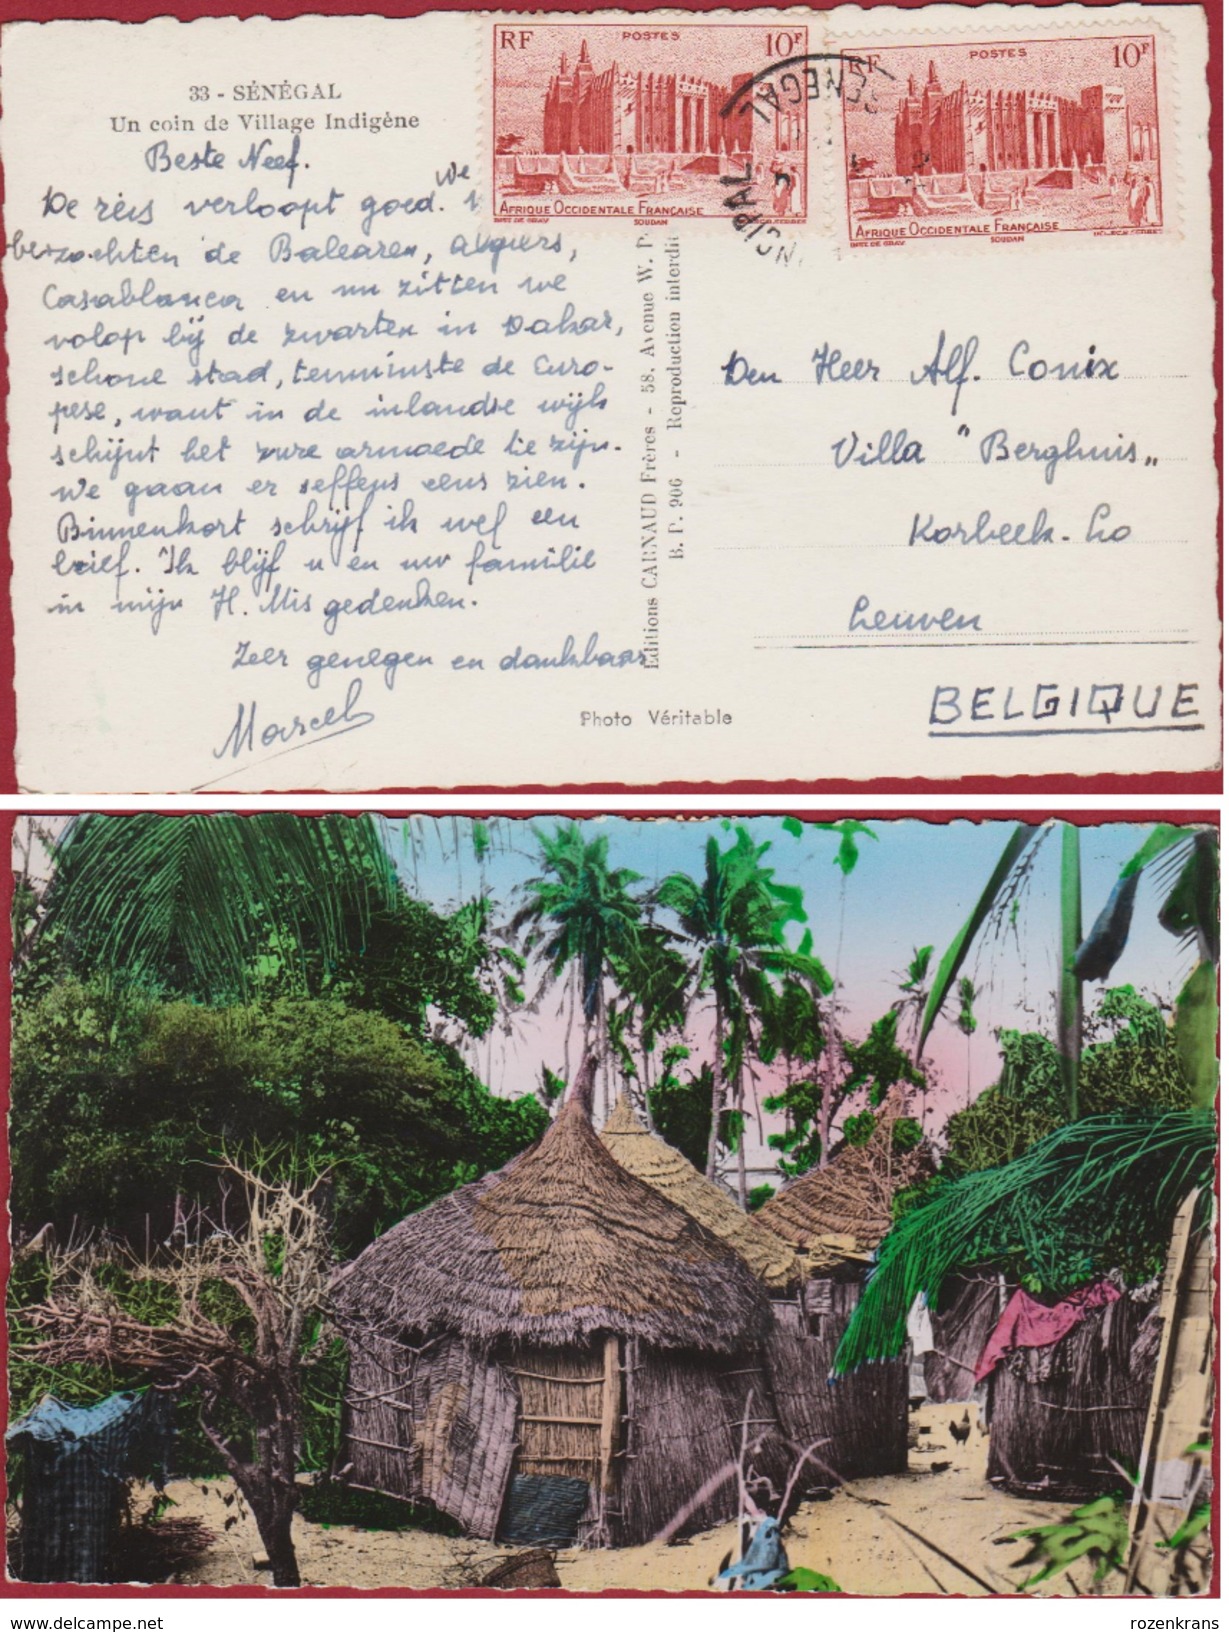 33 - SÉNÉGAL
Un coin de Village Indigène
Beste Neef.
De reis verloopt goed. We
bezochten de Balearen, Algiers,
Casablanca en nu zitten we
volop bij de zwarten in Dakar,
schone stad, tenminste de Euro-
pese, want in de inlandse wijk
schijnt het zure armoede te zijn.
We gaan er seffens eens zien.
Binnenkort schrijf ik wel een
brief. Ik blijf u en uw familie
in mijn H. Mis gedenken.
Zeer genegen en dankbaar
Marcel
Editions CARNAUD Frères - 58. Avenue W. P.
B. P. 906 - Reproduction interdit
Photo Véritable
RF POSTES 10F
AFRIQUE OCCIDENTALE FRANÇAISE
SOUDAN
RF POSTES 10F
AFRIQUE OCCIDENTALE FRANÇAISE
SOUDAN
NCIPAL SENEGAL
Den Heer Alf. Conix
Villa "Berghuis"
Korbeek-Lo
Leuven
BELGIQUE
www.delcampe.net
rozenkrans